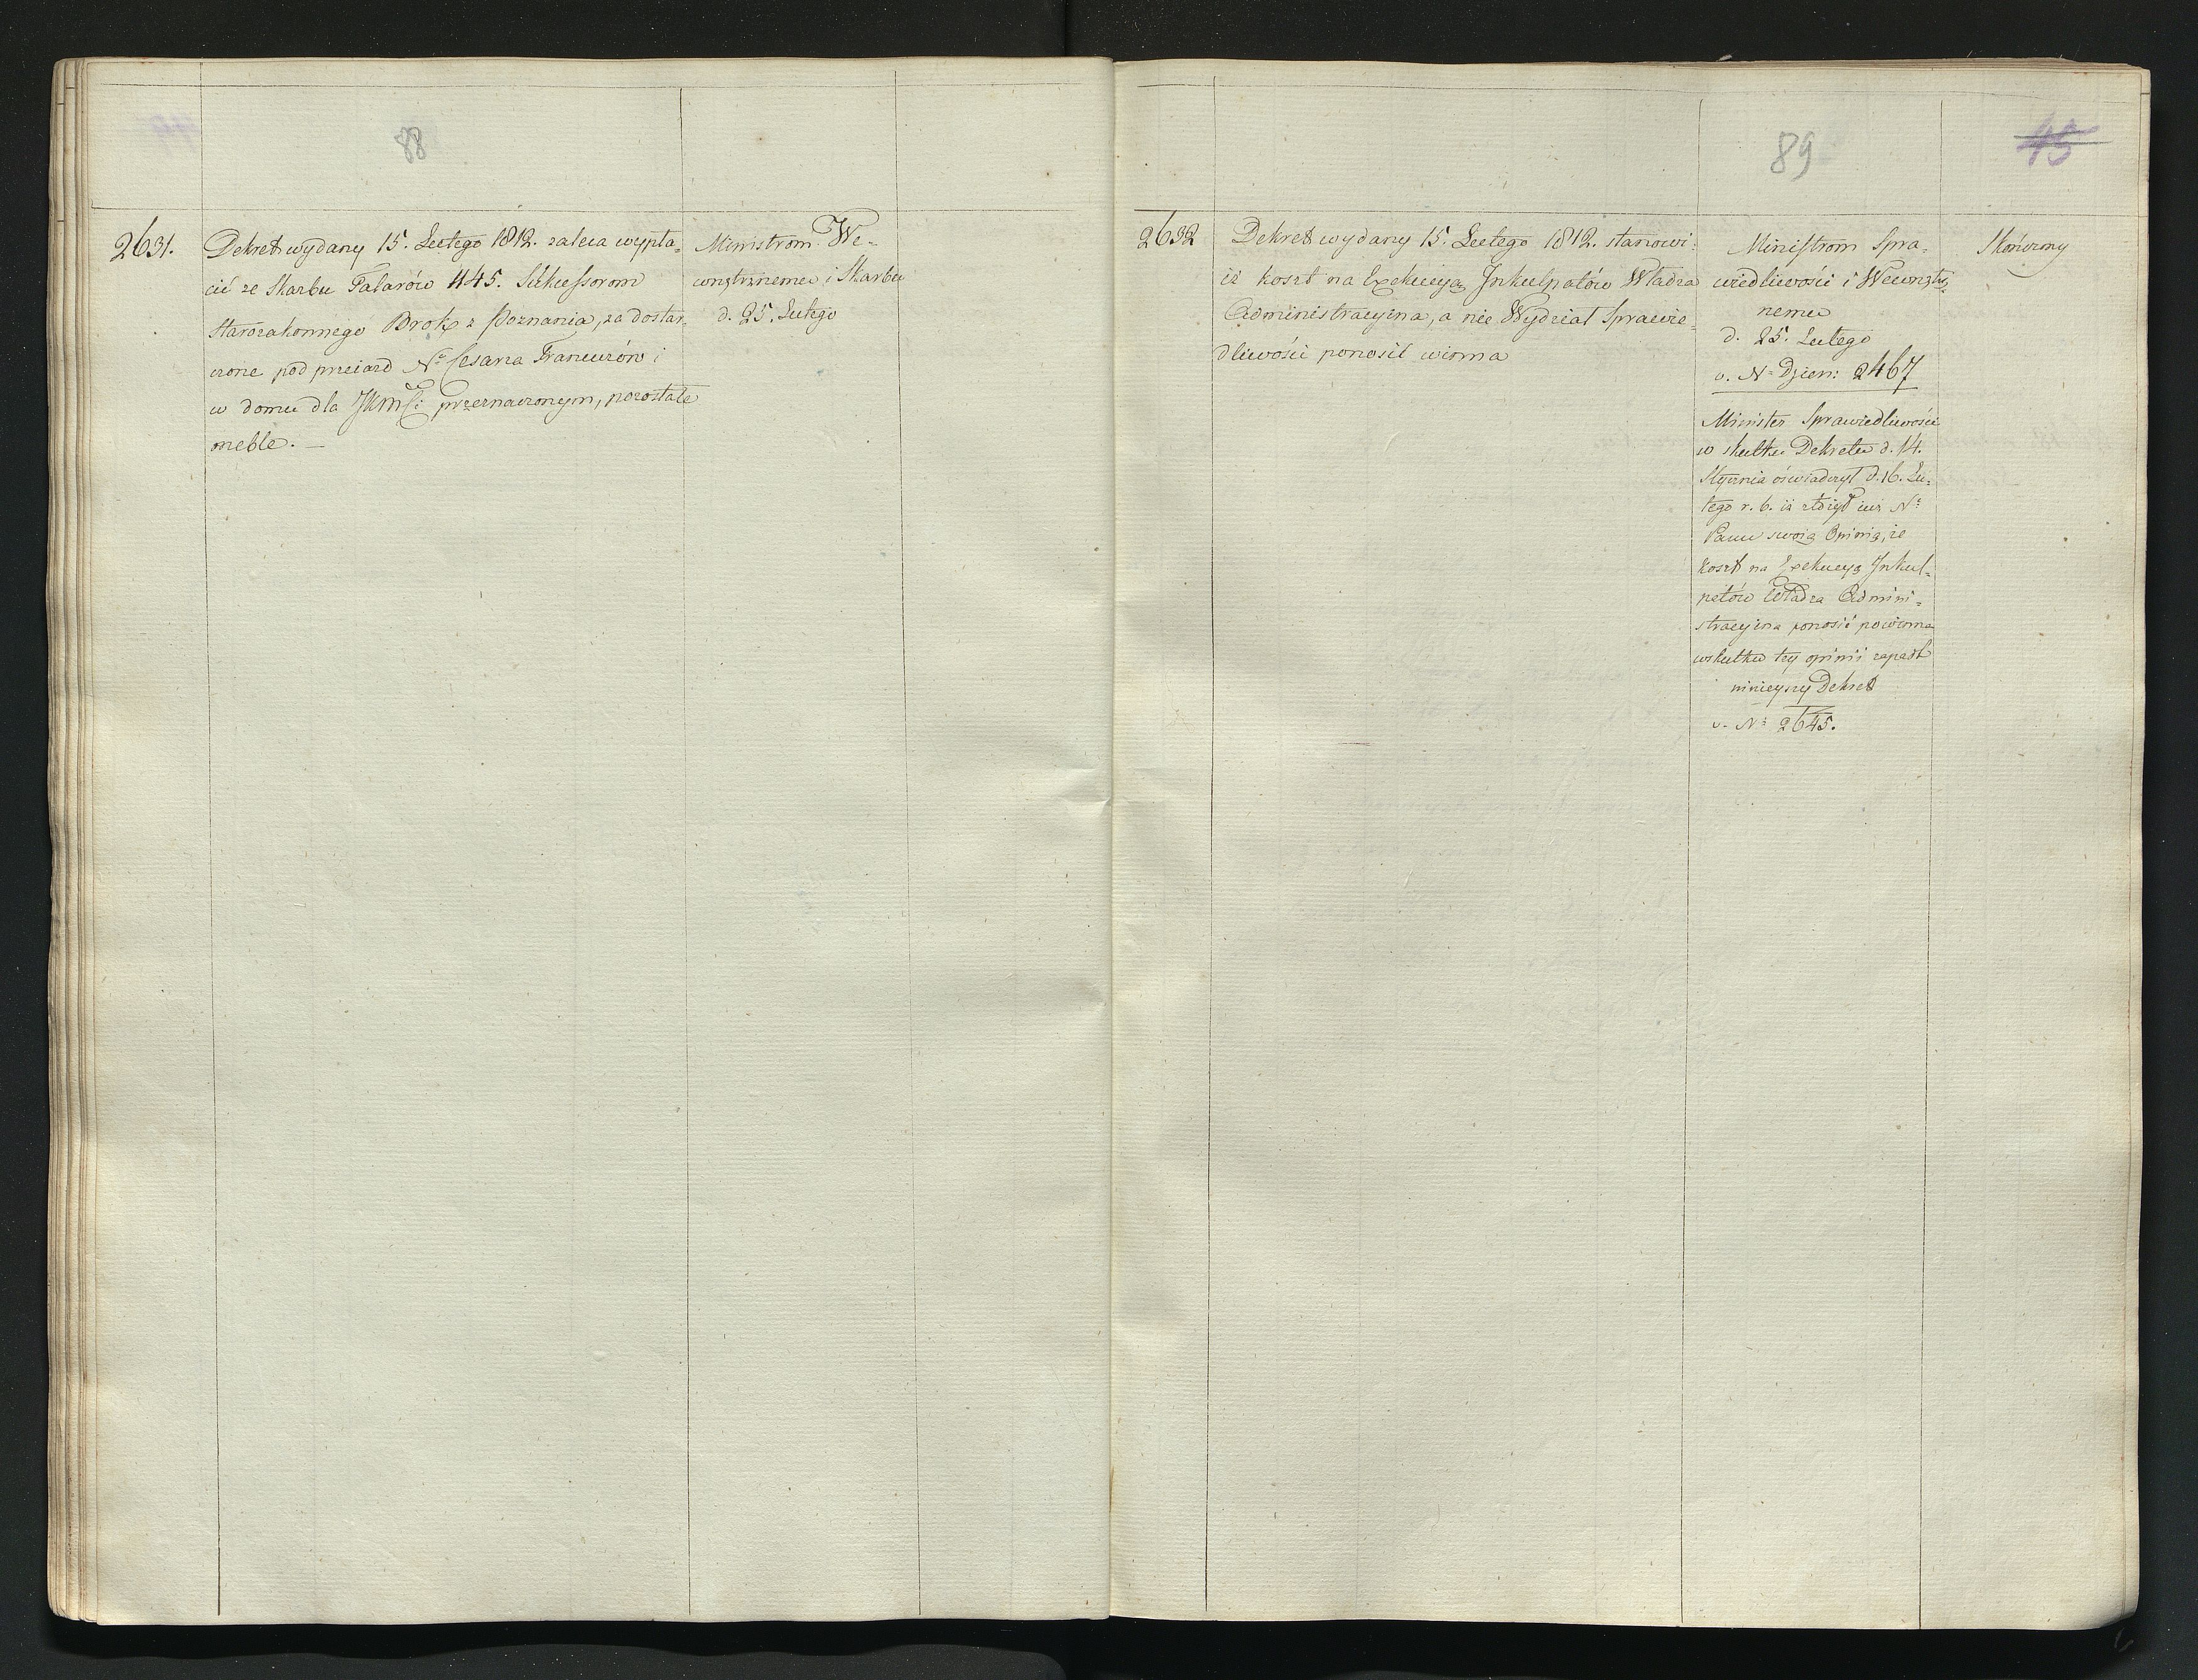 88
2631.
Dekret wydany 15. Lutego 1812. zaleca wypła-
cić ze Skarbu Talarów 445. Sukcessorom
Starozakonnego Brok z Poznania, za dostar-
czone pod przeiazd Nº Cesarza Francuzów i
w domu dla JKMSi przeznaczonym, pozostałe
meble. —
Ministrom We-
wnętrznemu i Skarbu
d. 25. Lutego
89
45
2632
Dekret wydany 15. Lutego 1812. stanowi
iż koszt na Exekucyą Inkulpatów Władza
Administracyina, a nie Wydział Sprawie-
dliwości ponosić winna
Ministrom Spra-
wiedliwości i Wewnętrz-
nemu
d. 25. Lutego
v. Nº Dzien: 2467
Minister Sprawiedliwości
w skutku Dekretu d. 14.
Stycznia oświadczył d. 16. Lu-
tego r. b. iż złożył iuż Nº
Panu swoią Opinią, że
koszt na Exekucyą Inkul-
patów Władza Admini-
stracyina ponosić powinna
wskutku tey opinii zapadł
ninieyszy Dekret
v. Nº 2645.
Skończony